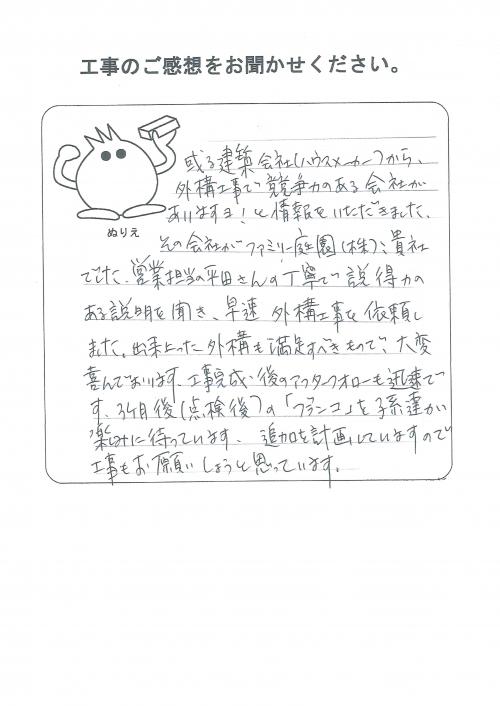 工事のご感想をお聞かせください。
或る建築会社(ハウスメーカー)から、
外構工事で競争力のある会社が
ありますヨ!と情報をいただきました。
ぬりえ
その会社がファミリー庭園(株)、貴社
でした。営業担当の平田さんの丁寧で説得力の
ある説明を聞き、早速外構工事を依頼し
ました。出来上った外構も満足すべきもので、大変
喜んでおります。工事完成後のアフターフォローも迅速で
す。3ヶ月後(点検後)の「ブランコ」を子孫達が
楽しみに待っています。追加を計画していますので
工事もお願いしようと思っています。